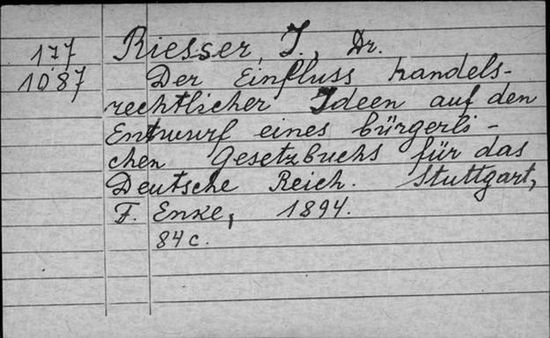 177
1087
Riesser, J., Dr.
Der Einfluss handels-
rechtlicher Ideen auf den
Entwurf eines bürgerli-
chen Gesetzbuchs für das
Deutsche Reich. Stuttgart,
F. Enke, 1894.
84 c.